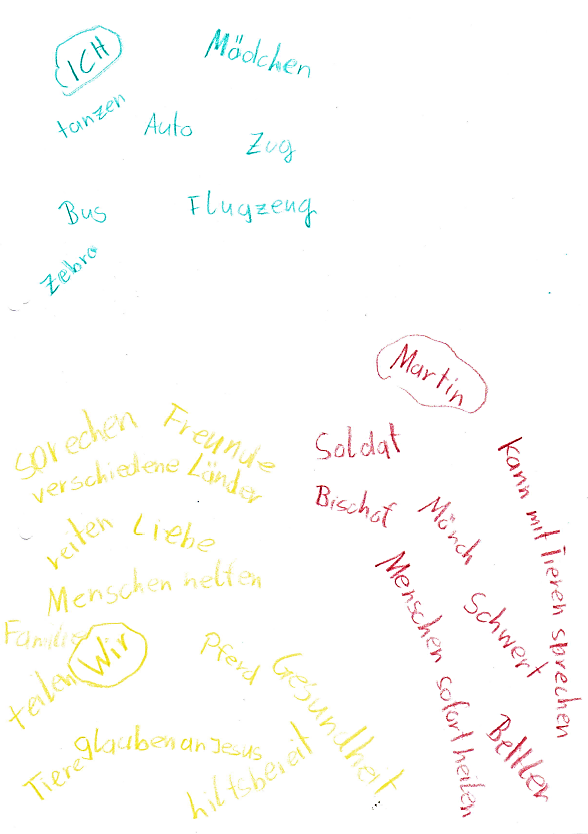 ICH
Mädchen
tanzen
Auto
Zug
Bus
Flugzeug
Zebra
Martin
Soldat
Bischof
Mönch
kann mit Tieren sprechen
Schwert
Menschen sofort heilen
Bettler
sprechen
Freunde
verschiedene Länder
reiten
Liebe
Menschen helfen
Familie
Wir
Pferd
teilen
Gesundheit
glauben an Jesus
Tiere
hilfsbereit